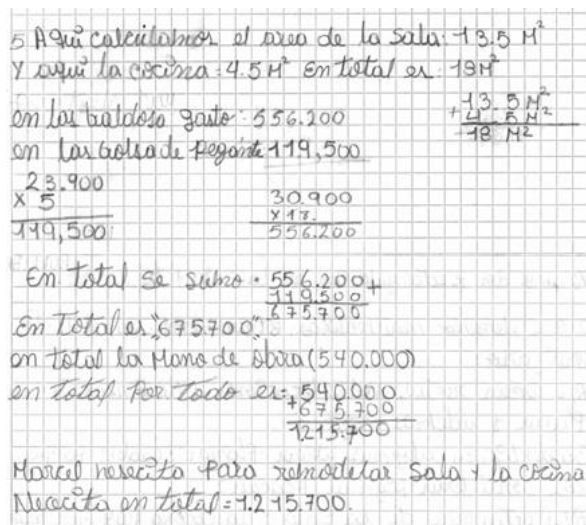 5 Aqui calculamos el area de la sala: 13.5 M²
Y aqui la cocina: 4.5 M² en total es: 18M²
13.5 M²
+ 4.5 M²
18 M²
en las baldosa gasto: 556.200
en las bolsa de pegante 119,500
23.900
x 5
119,500
30.900
x 18.
556.200
En total se sumo: 556.200 +
119.500
675.700
En Total es "675700"
en total la Mano de obra (540.000)
en total Por Todo es: 540.000
+675.700
1215.700
Marcel nesecita para remodelar Sala y la cocina
Nececita en total = 1.215.700.